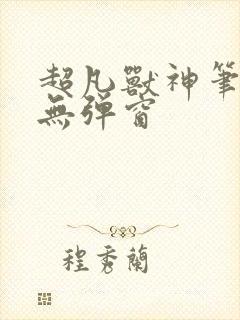 超凡獸神筆
無彈窗
程秀蘭